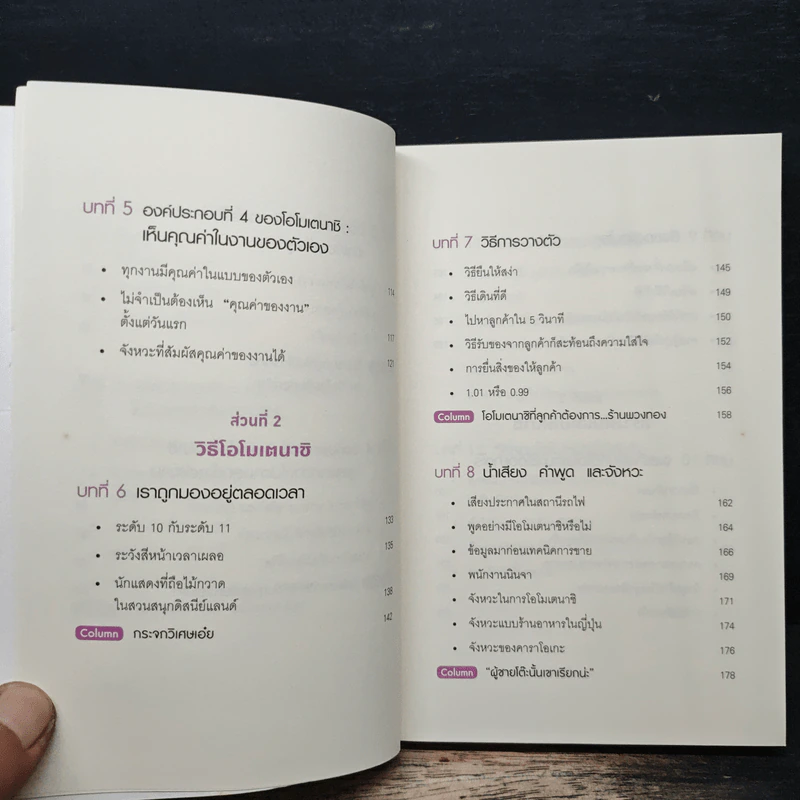 บทที่ 5 องค์ประกอบที่ 4 ของโอโมเตนาชิ :
เห็นคุณค่าในงานของตัวเอง
• ทุกงานมีคุณค่าในแบบของตัวเอง 114
• ไม่จำเป็นต้องเห็น "คุณค่าของงาน"
ตั้งแต่วันแรก 117
• จังหวะที่สัมผัสคุณค่าของงานได้ 121
ส่วนที่ 2
วิธีโอโมเตนาชิ
บทที่ 6 เราถูกมองอยู่ตลอดเวลา
• ระดับ 10 กับระดับ 11 133
• ระวังสีหน้าเวลาเผลอ 135
• นักแสดงที่ถือไม้กวาด
ในสวนสนุกดิสนีย์แลนด์ 138
Column กระจกวิเศษเอ๋ย 142
บทที่ 7 วิธีการวางตัว
• วิธียืนให้สง่า 145
• วิธีเดินที่ดี 149
• ไปหาลูกค้าใน 5 วินาที 150
• วิธีรับของจากลูกค้าก็สะท้อนถึงความใส่ใจ 152
• การยื่นสิ่งของให้ลูกค้า 154
• 1.01 หรือ 0.99 156
Column โอโมเตนาชิที่ลูกค้าต้องการ...ร้านพวงทอง 158
บทที่ 8 น้ำเสียง คำพูด และจังหวะ
• เสียงประกาศในสถานีรถไฟ 162
• พูดอย่างมีโอโมเตนาชิหรือไม่ 164
• ข้อมูลมาก่อนเทคนิคการขาย 166
• พนักงานนินจา 169
• จังหวะในการโอโมเตนาชิ 171
• จังหวะแบบร้านอาหารในญี่ปุ่น 174
• จังหวะของคาราโอเกะ 176
Column "ผู้ชายโต๊ะนั้นเขาเรียกน่ะ" 178